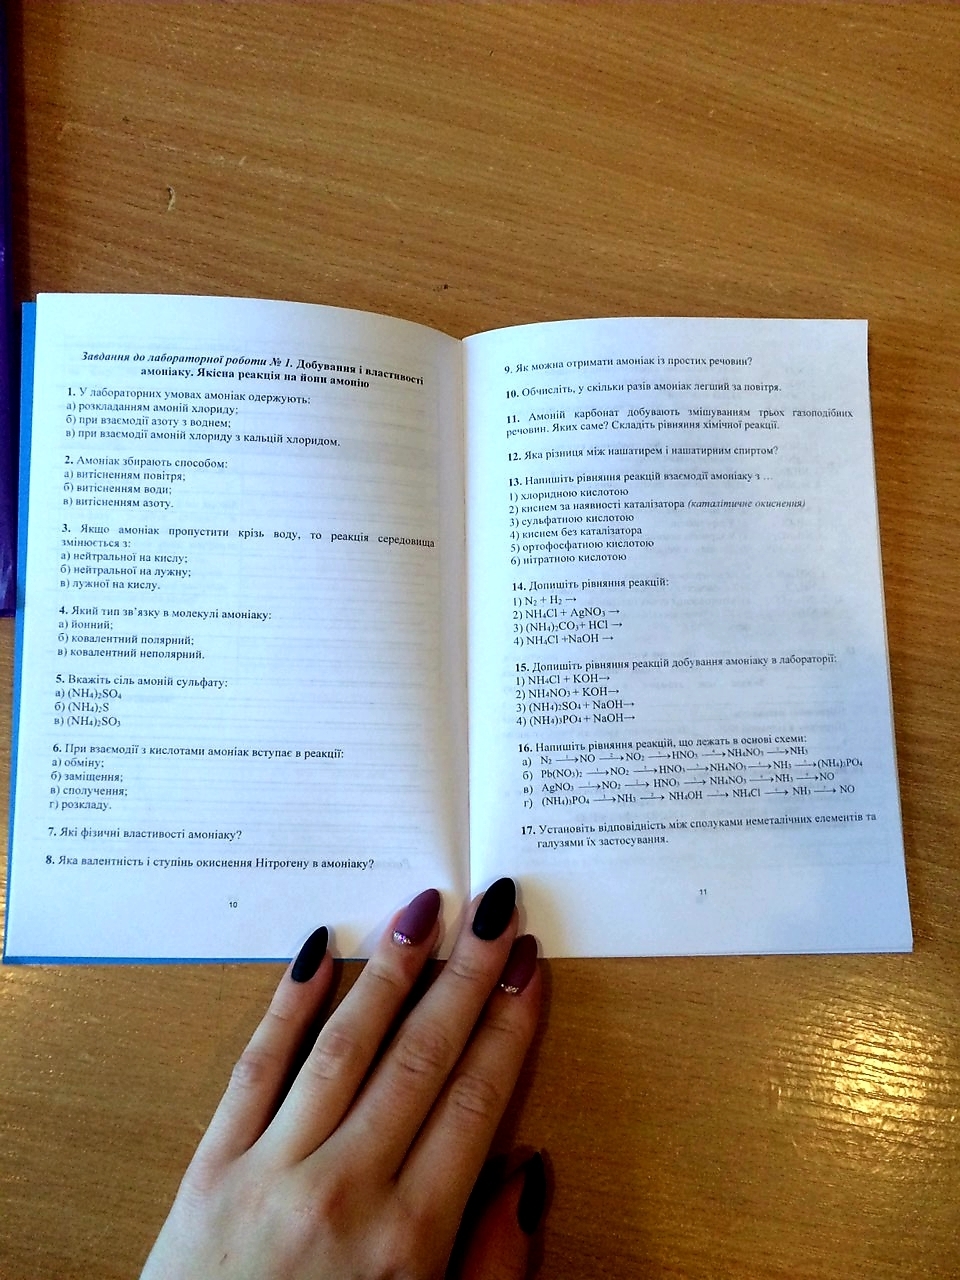 Завдання до лабораторної роботи № 1. Добування і властивості
амоніаку. Якісна реакція на йони амонію
1. У лабораторних умовах амоніак одержують:
а) розкладанням амоній хлориду;
б) при взаємодії азоту з воднем;
в) при взаємодії амоній хлориду з кальцій хлоридом.
2. Амоніак збирають способом:
а) витісненням повітря;
б) витісненням води;
в) витісненням азоту.
3. Якщо амоніак пропустити крізь воду, то реакція середовища
змінюється з:
а) нейтральної на кислу;
б) нейтральної на лужну;
в) лужної на кислу.
4. Який тип зв’язку в молекулі амоніаку:
а) йонний;
б) ковалентний полярний;
в) ковалентний неполярний.
5. Вкажіть сіль амоній сульфату:
а) (NH₄)₂SO₄
б) (NH₄)₂S
в) (NH₄)₂SO₃
6. При взаємодії з кислотами амоніак вступає в реакції:
а) обміну;
б) заміщення;
в) сполучення;
г) розкладу.
7. Які фізичні властивості амоніаку?
8. Яка валентність і ступінь окиснення Нітрогену в амоніаку?
10
9. Як можна отримати амоніак із простих речовин?
10. Обчисліть, у скільки разів амоніак легший за повітря.
11. Амоній карбонат добувають змішуванням трьох газоподібних
речовин. Яких саме? Складіть рівняння хімічної реакції.
12. Яка різниця між нашатирем і нашатирним спиртом?
13. Напишіть рівняння реакцій взаємодії амоніаку з …
1) хлоридною кислотою
2) киснем за наявності каталізатора (каталітичне окиснення)
3) сульфатною кислотою
4) киснем без каталізатора
5) ортофосфатною кислотою
6) нітратною кислотою
14. Допишіть рівняння реакцій:
1) N₂ + H₂ →
2) NH₄Cl + AgNO₃ →
3) (NH₄)₂CO₃+ HCl →
4) NH₄Cl +NaOH →
15. Допишіть рівняння реакцій добування амоніаку в лабораторії:
1) NH₄Cl + KOH→
2) NH₄NO₃ + KOH→
3) (NH₄)₂SO₄ + NaOH→
4) (NH₄)₃PO₄ + NaOH→
16. Напишіть рівняння реакцій, що лежать в основі схеми:
а) N₂ —1→ NO —2→ NO₂ —3→ HNO₃ —4→ NH₄NO₃ —5→ NH₃
б) Pb(NO₃)₂ —1→ NO₂ —2→ HNO₃ —3→ NH₄NO₃ —4→ NH₃ —5→ (NH₄)₃PO₄
в) AgNO₃ —1→ NO₂ —2→ HNO₃ —3→ NH₄NO₃ —4→ NH₃ —5→ NO
г) (NH₄)₃PO₄ —1→ NH₃ —2→ NH₄OH —3→ NH₄Cl —4→ NH₃ —5→ NO
17. Установіть відповідність між сполуками неметалічних елементів та
галузями їх застосування.
11